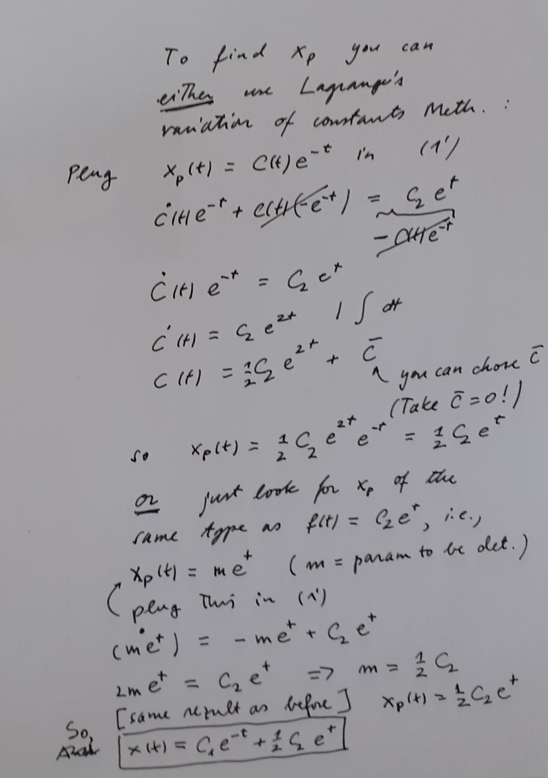 To find xₚ you can
either use Lagrange's
variation of constants Meth. :
Plug xₚ(t) = C(t)e⁻ᵗ in (1')
Ċ(t)e⁻ᵗ + C(t)(-e⁻ᵗ) = C₂eᵗ
- C(t)e⁻ᵗ
Ċ(t) e⁻ᵗ = C₂ eᵗ
Ċ(t) = C₂ e²ᵗ | ∫ dt
C(t) = ½C₂ e²ᵗ + C̄
you can chose C̄
(Take C̄ = 0!)
so xₚ(t) = ½ C₂ e²ᵗ e⁻ᵗ = ½ C₂ eᵗ
or just look for xₚ of the
same type as f(t) = C₂eᵗ, i.e.,
xₚ(t) = meᵗ (m = param to be det.)
plug this in (1')
(meᵗ)˙ = - meᵗ + C₂ eᵗ
2meᵗ = C₂eᵗ => m = ½ C₂
[same result as before] xₚ(t) = ½C₂eᵗ
So,
x(t) = C₁e⁻ᵗ + ½ C₂ eᵗ